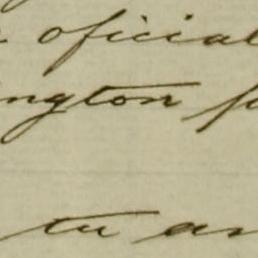 oficial
ington
tu an